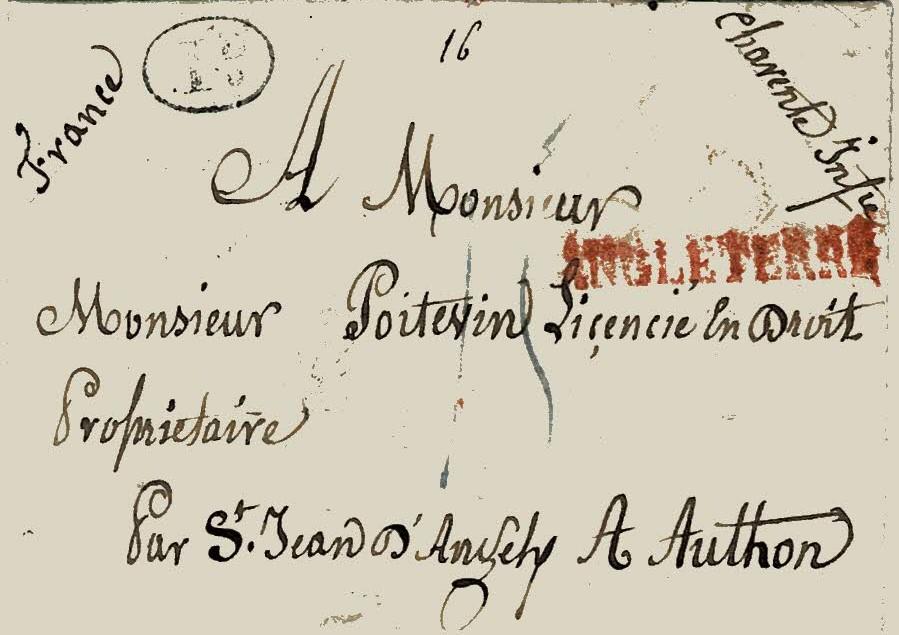 16
France
Charente Infre
A Monsieur
ANGLETERRE
Monsieur Poitevin Liçencié En Droit
Propriétaire
Par St. Jean D'Angely A Authon